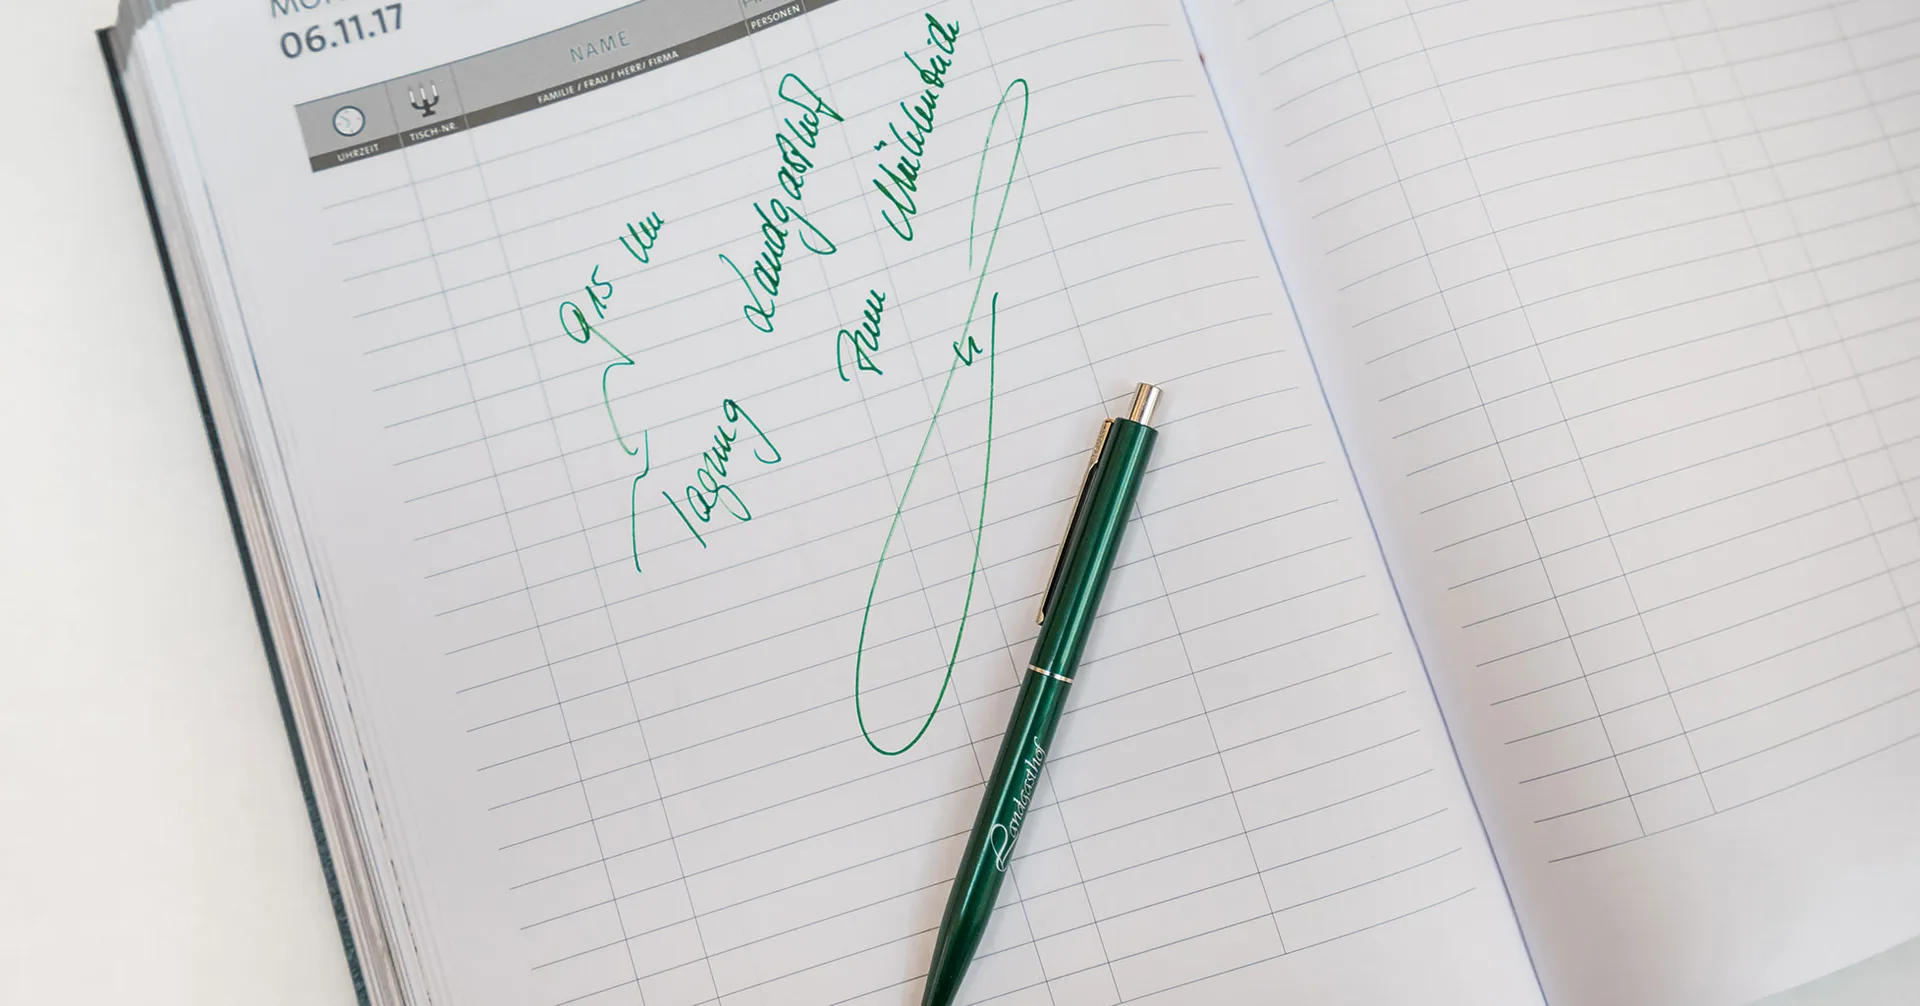 06.11.17
NAME
PERSONEN
FAMILIE / FRAU / HERR/ FIRMA
TISCH-NR.
UHRZEIT
9 15 Uhr
Tagung Landgasthof
zum Mühlenteich
Landgasthof